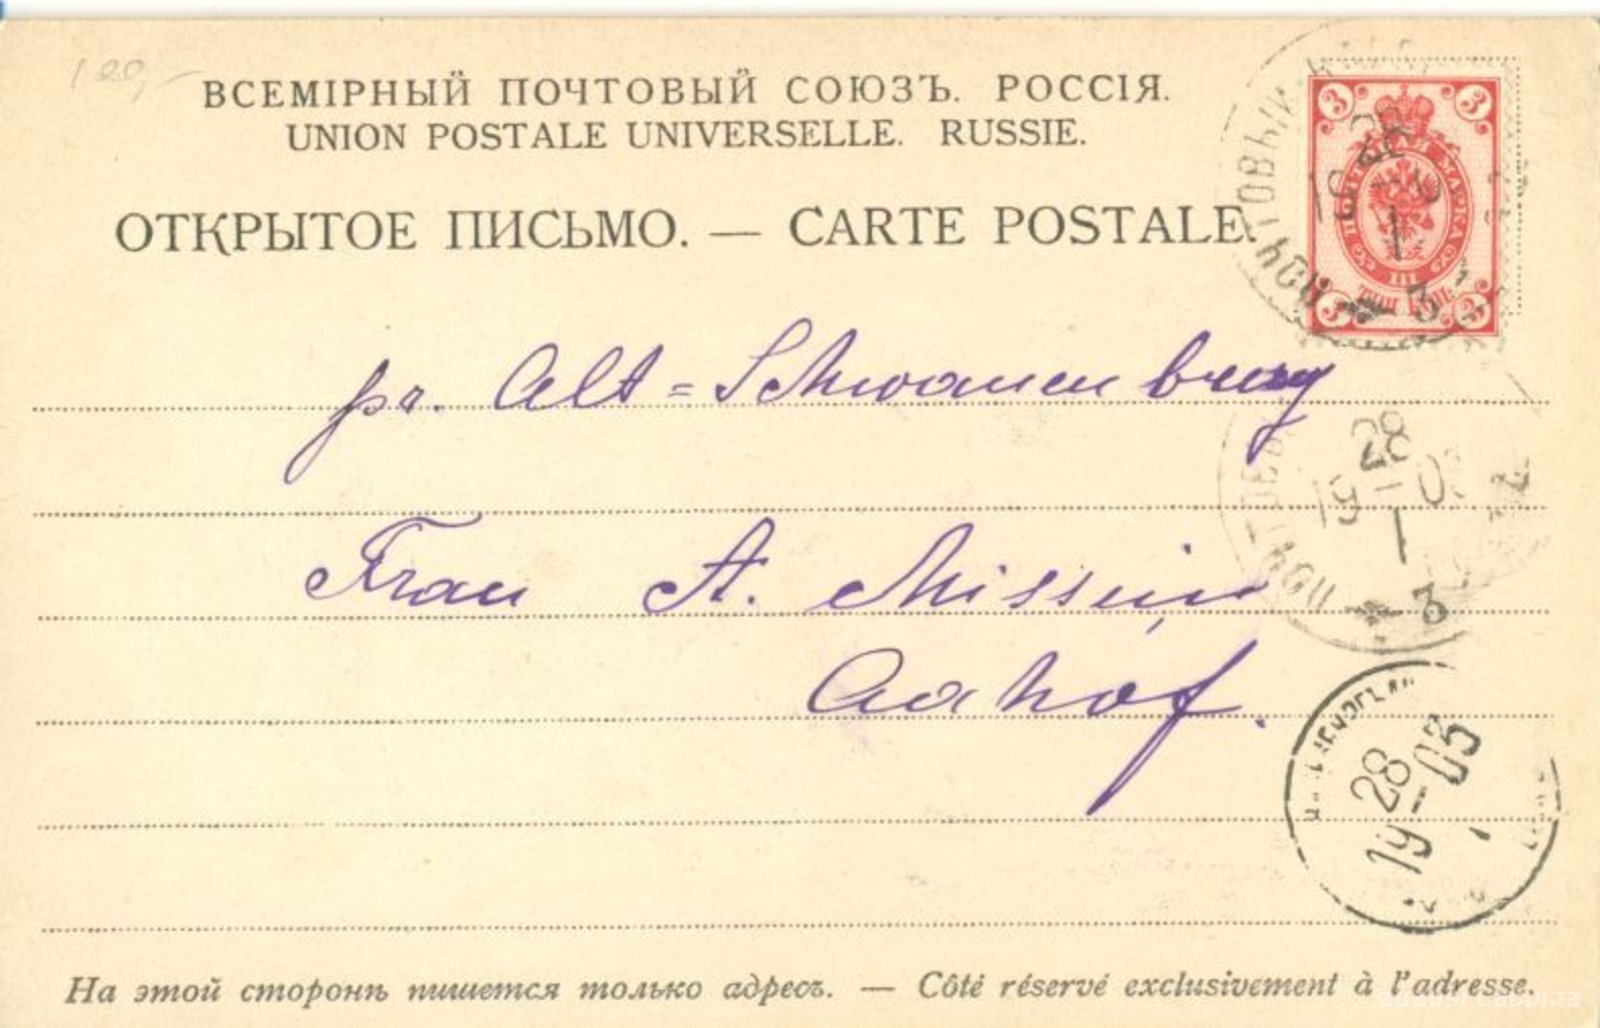 100,-
ВСЕМІРНЫЙ ПОЧТОВЫЙ СОЮЗЪ. РОССІЯ.
UNION POSTALE UNIVERSELLE. RUSSIE.
ОТКРЫТОЕ ПИСЬМО. — CARTE POSTALE.
3 3
ПОЧТОВАЯ МАРКА
III
ТРИ КОП.
3 3
ПОЧТОВЫЙ
28
19
1
3
pr. Alt=Schwanenburg
ПОЧТОВЫЙ
28
19-03
1
3
Frau A. Missin,
Aahof.
28
19-03
1
На этой сторонѣ пишется только адресъ. — Côté réservé exclusivement à l'adresse.